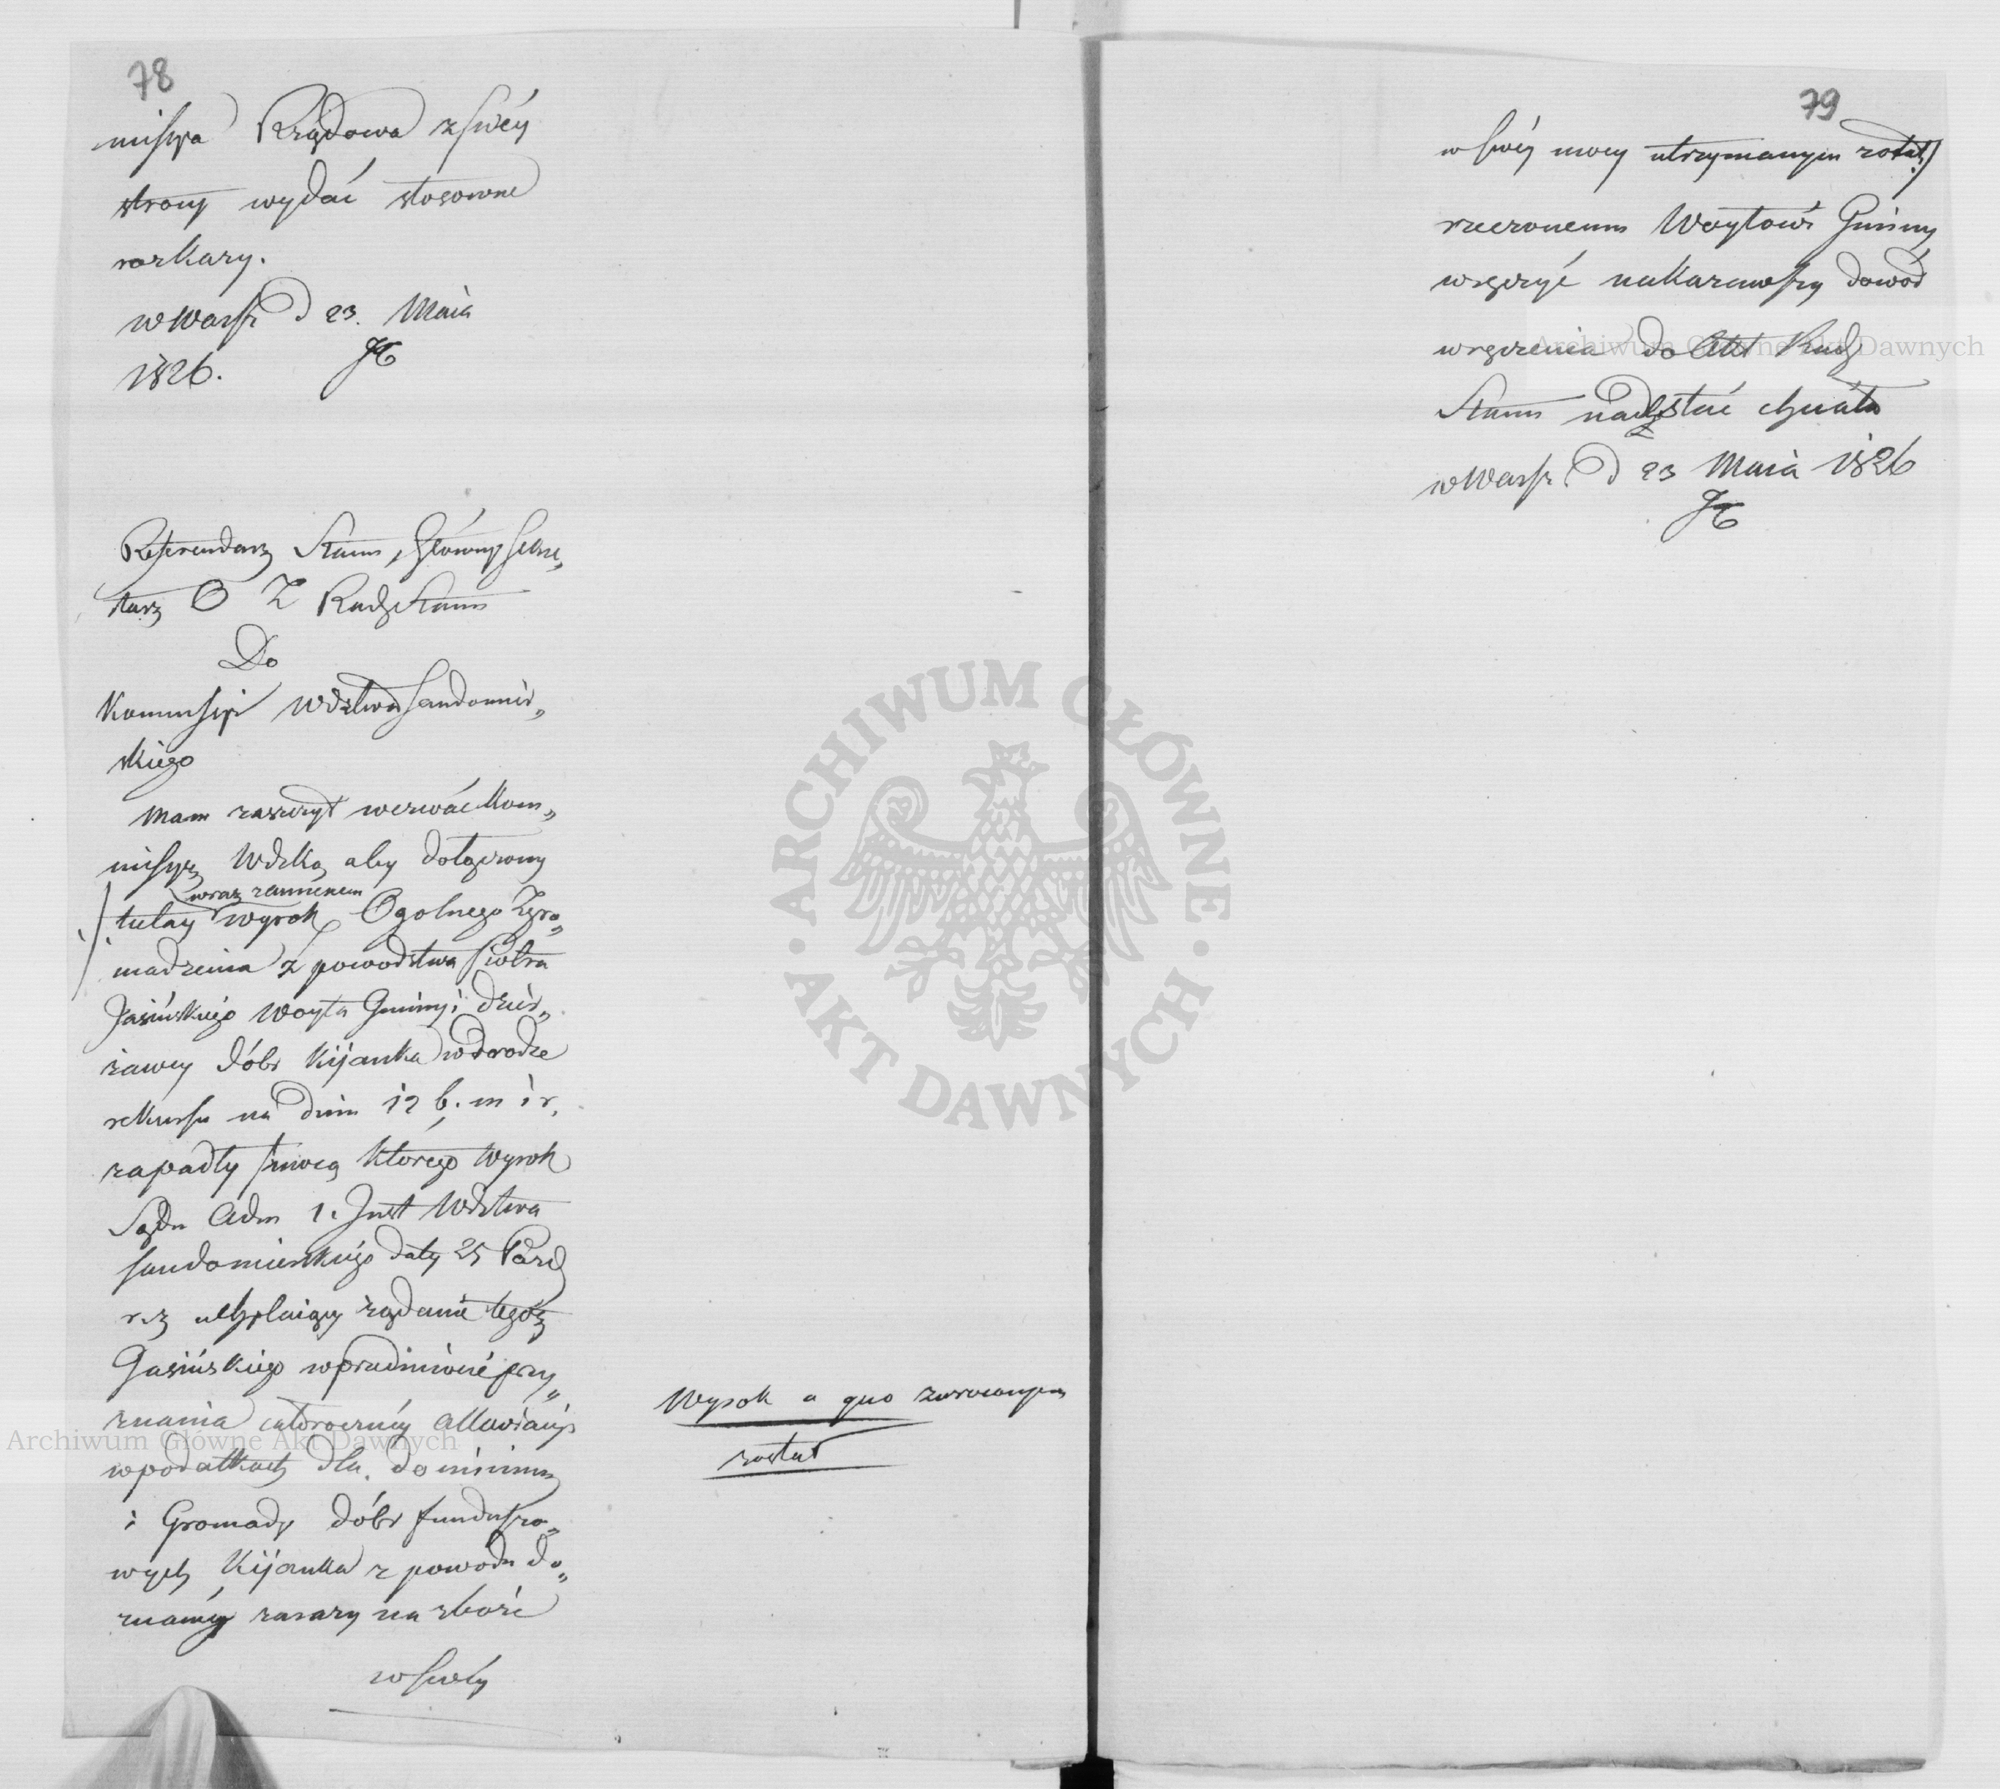 78
missya Rządowa z swéy
strony wydać stosowne
rozkazy.
w Warsz d 23. Maia
1826.
Referendarz Stanu, Główny Sekre„
tarz O Z Rady Stanu
Do
Kommissyi Wdztwa Sandomir„
skiego
Mam zaszczyt wezwać Kom„
missyą Wdzką aby dołączony
wraz z
tutay wyrok Ogolnego Zgro„
madzenia z powodztwa Piotra
Jasińskiego Woyta Gminy i dzier„
żawcy dóbr Kijanka w drodze
rekursu na dniu 12 b. m i r.
zapadły mocą którego Wyrok
Sądu Adm 1. Inst Wdztwa
Sandomierskiego daty 25 Paźd
r. z żądanie tegoż
Jasińskiego w przedmiocie przy„
znania całorocznéy allewiacyi
w podatkach dla dominium
i Gromady dóbr funduszo„
wych Kijanka z powodu do„
znanéy zarazy na zboże
w swéy
Wyrok a quo
został
79
w swéy mocy utrzymanym został
rzeczonemu Woytowi Gminy
wręczyć nakazawszy dowód
wręczenia do Akt Rady
Stanu nadesłać chciała
w Warsz. d 23 Maia 1826
ARCHIWUM GŁÓWNE AKT DAWNYCH
Archiwum Główne Akt Dawnych
Archiwum Główne Akt Dawnych